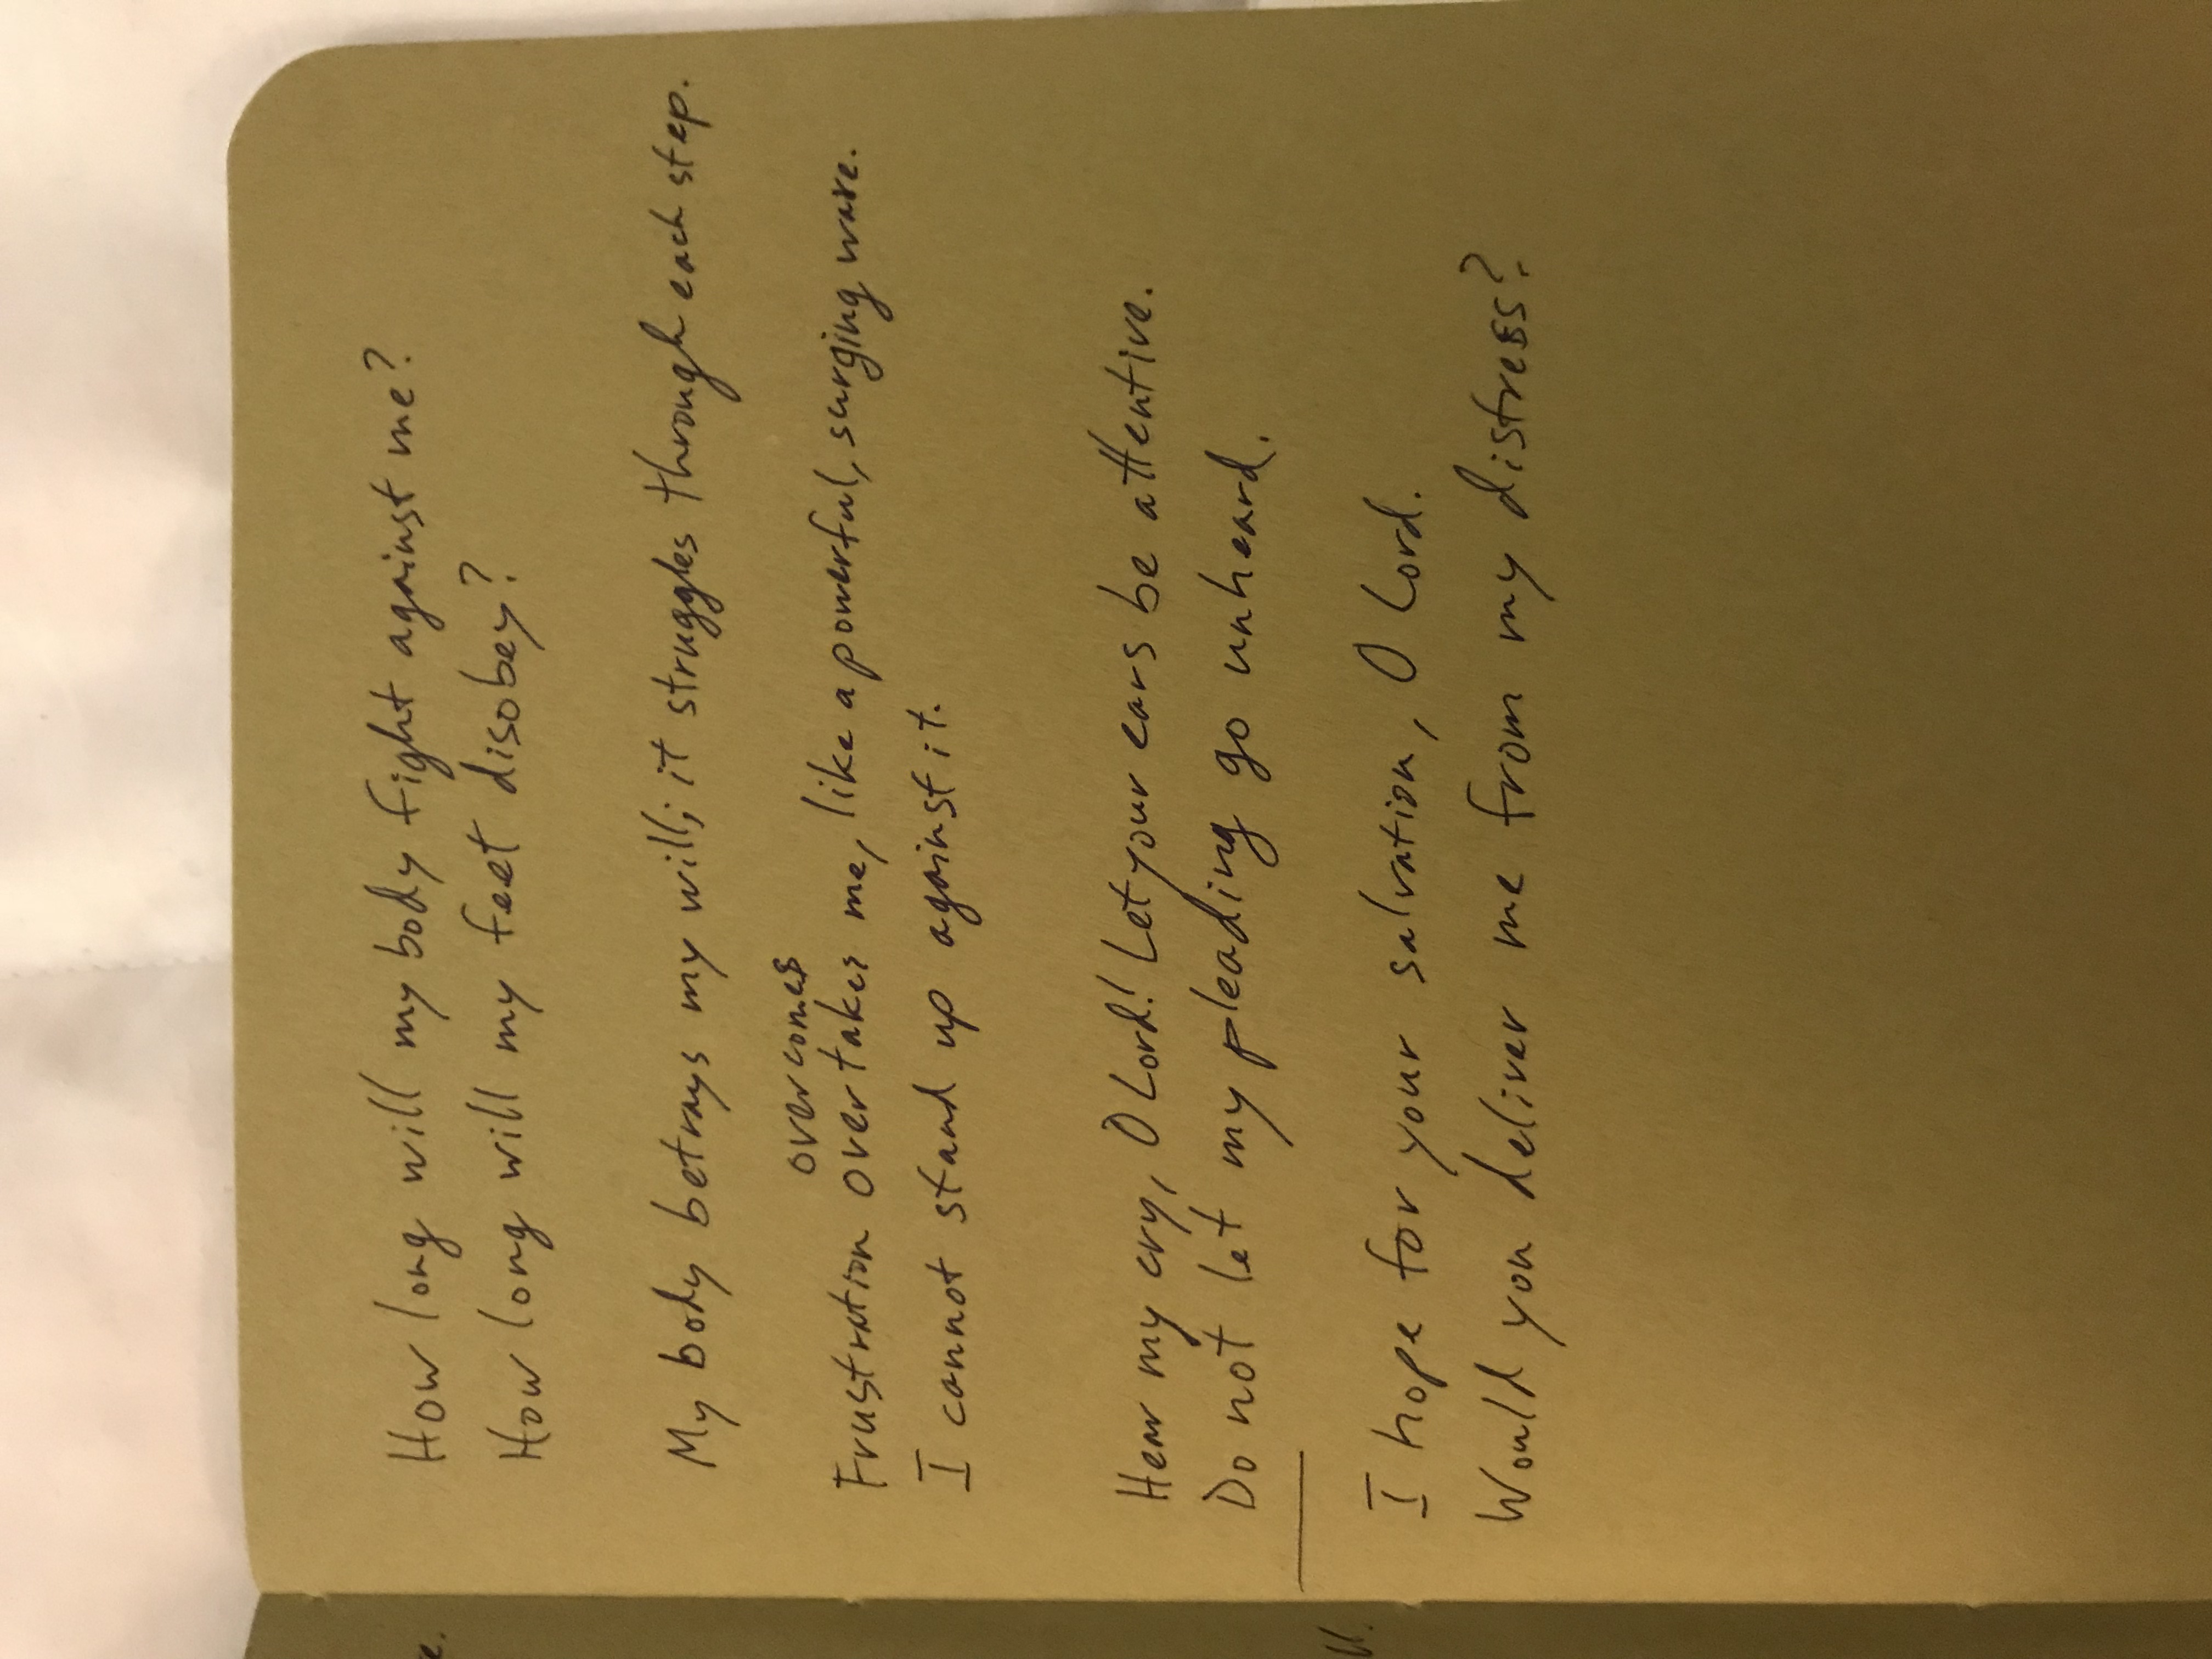 e.
How long will my body fight against me?
How long will my feet disobey?
My body betrays my will; it struggles through each step.
overcomes
Frustration overtakes me, like a powerful, surging wave.
I cannot stand up against it.
Hear my cry, O Lord! Let your ears be attentive.
Do not let my pleading go unheard.
ll.
I hope for your salvation, O Lord.
Would you deliver me from my distress?